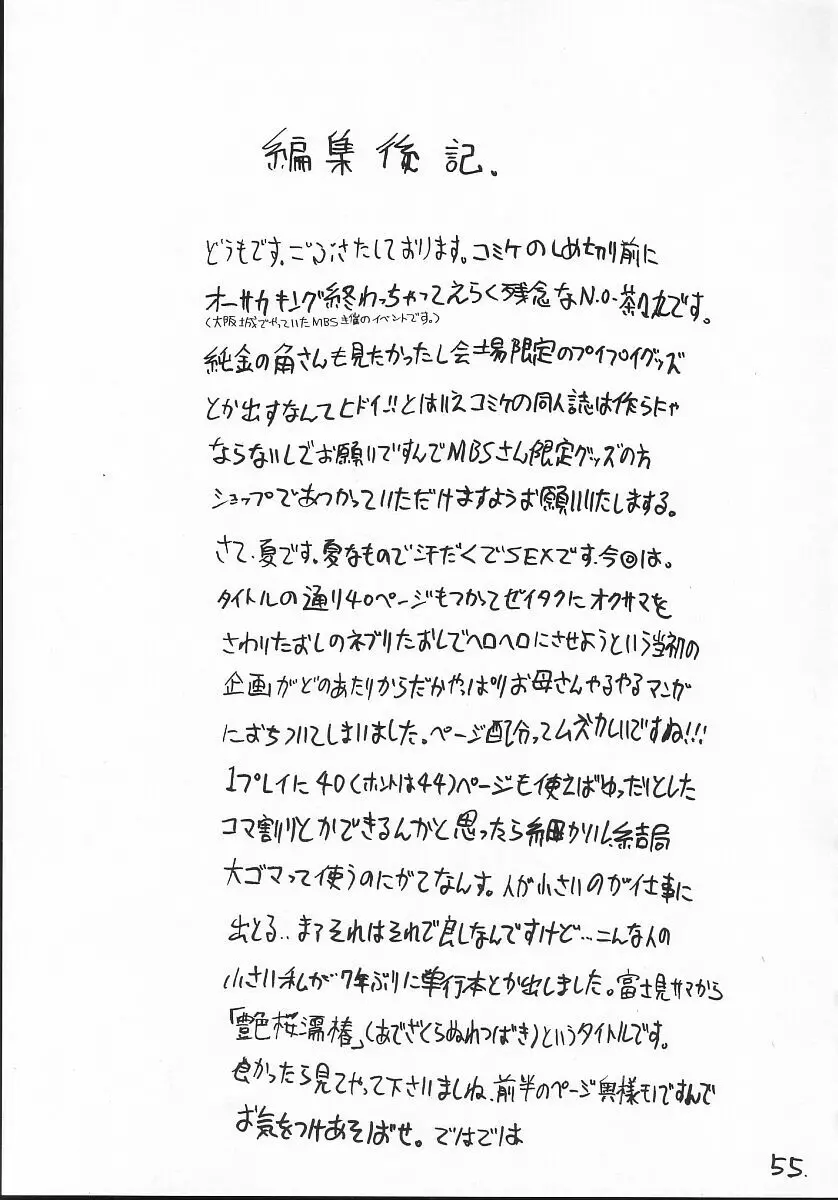 編集後記.
どうもです、ごぶさたしております。コミケのしめ切り前に
オーサカキング終わっちゃってえらく残念なN.O-茶々丸です。
(大阪城でやっていたMBS主催のイベントです。)
純金の角さんも見たかったし会場限定のプイプイグッズ
とか出すなんてヒドイ!!とはいえコミケの同人誌は作らにゃ
ならないしでお願いですんでMBSさん限定グッズの方
ショップであつかっていただけますようお願いいたしまする。
さて、夏です、夏なもので汗だくでSEXです、今回は。
タイトルの通り40ページもつかってゼイタクにオクサマを
さわりたおしのネブりたおしでヘロヘロにさせようという当初の
企画がどのあたりからだかやっぱりお母さんやるやるマンガ
におちついてしまいました。ページ配分ってムズカしいですね!!!
1プレイに40(ホントは44)ページも使えばゆったりとした
コマ割りとかできるんかと思ったら細かりし、結局
大ゴマって使うのにがてなんす。人が小さいのが仕事に
出とる‥まァそれはそれで良しなんですけど…こんな人の
小さい私が7年ぶりに単行本とか出しました。富士見サマから
「艶色桜濡椿」(あでざくらぬれつばき)というタイトルです。
良かったら見てやって下さいましね、前半のページ奥様モノですんで
お気をつけあそばせ。ではでは
55.